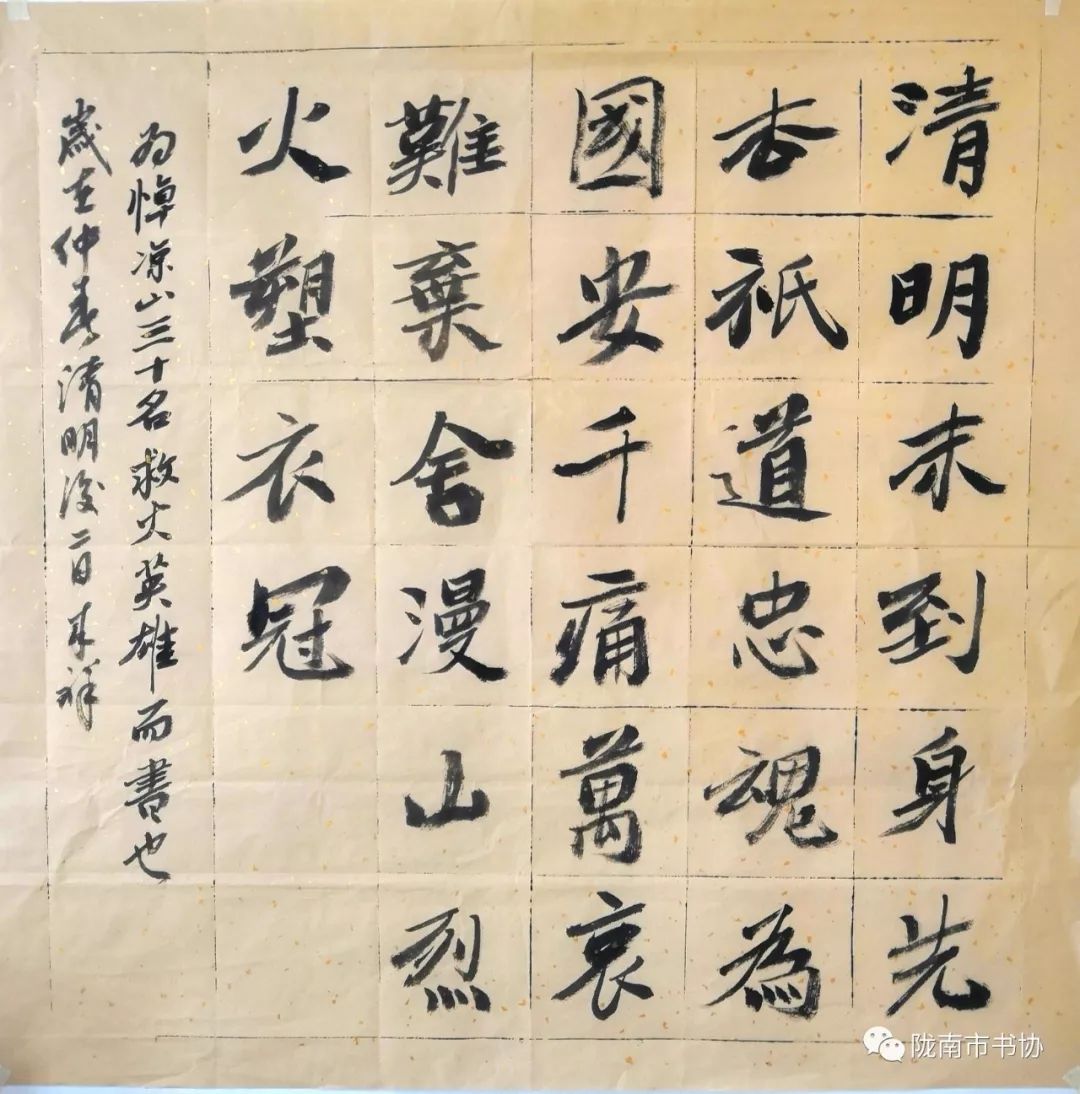 清明未到身先
杏祇道忠魂為
國安千痛萬哀
難棄舍漫山烈
火塑衣冠
为悼凉山三十名救火英雄而書也
歲在仲春清明後二日 祥
陇南市书协